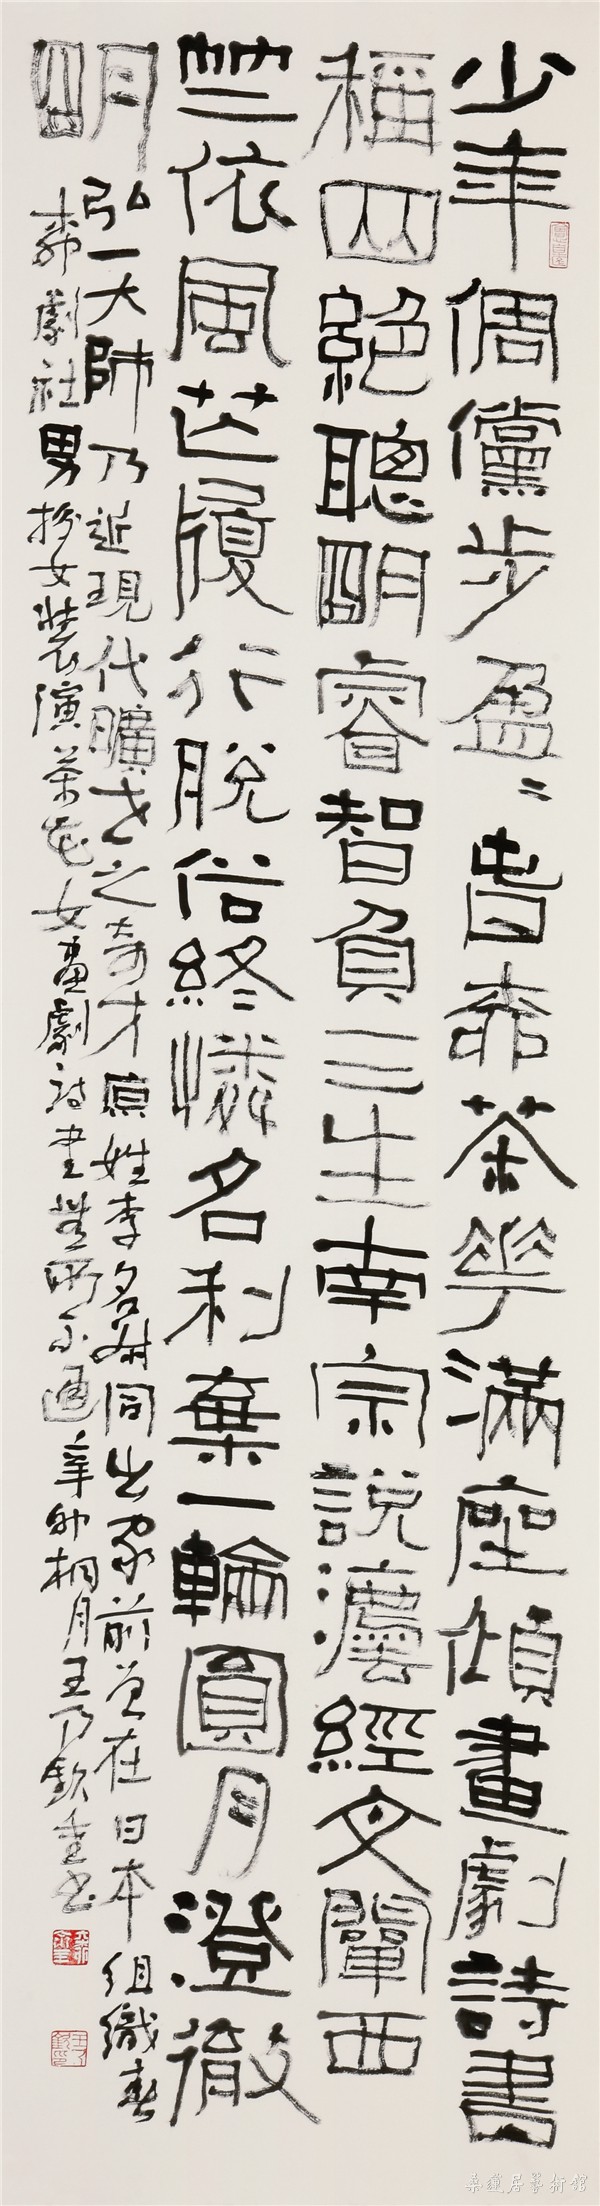 少年倜儻步盈〻旾桺茶華滿座傾畫劇詩書
稱四絕聰明睿智負三生南宗說灋經文闡西
竺依風芒履行脫俗終憐名利棄一輪圓月澄徹
明
弘一大師乃近現代曠世之奇才原姓李名叔同出家前曾在日本組織春
桺劇社男扮女裝演茶花女畫劇詩書無所不通辛卯桐月王乃欽並書
桑蓮居藝術館